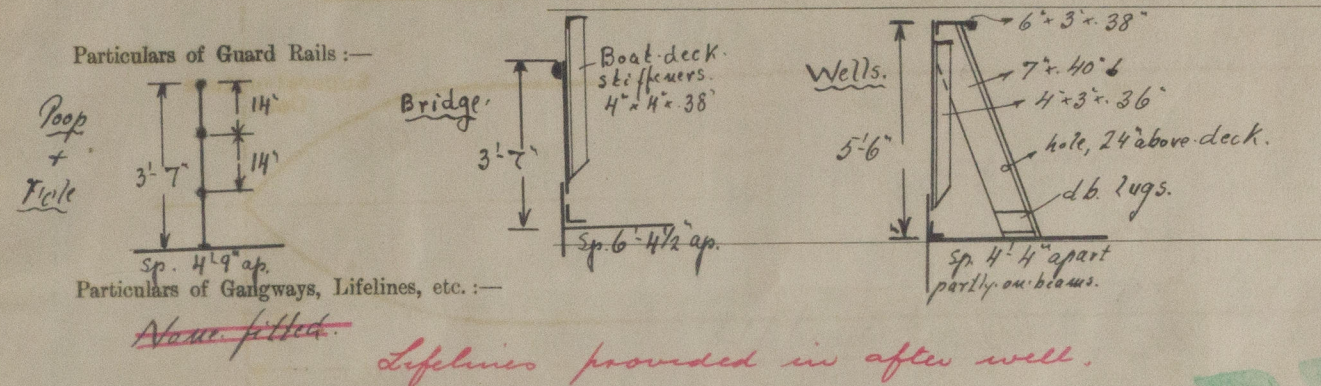 Particulars of Guard Rails :—
Poop
+
F'cle
3'-7"
14"
14"
Sp. 4'-9" ap.
Bridge.
3'-7"
Boat-deck.
stiffeners.
4" x 4" x .38"
Sp. 6'-4½" ap.
Wells.
5'-6"
6" x 3" x .38"
7" x .40"
4" x 3" x .36"
hole, 24" above deck.
db. lugs.
Sp. 4'-4" apart
partly on beams.
Particulars of Gangways, Lifelines, etc. :—
None fitted.
Lifelines provided in after well.